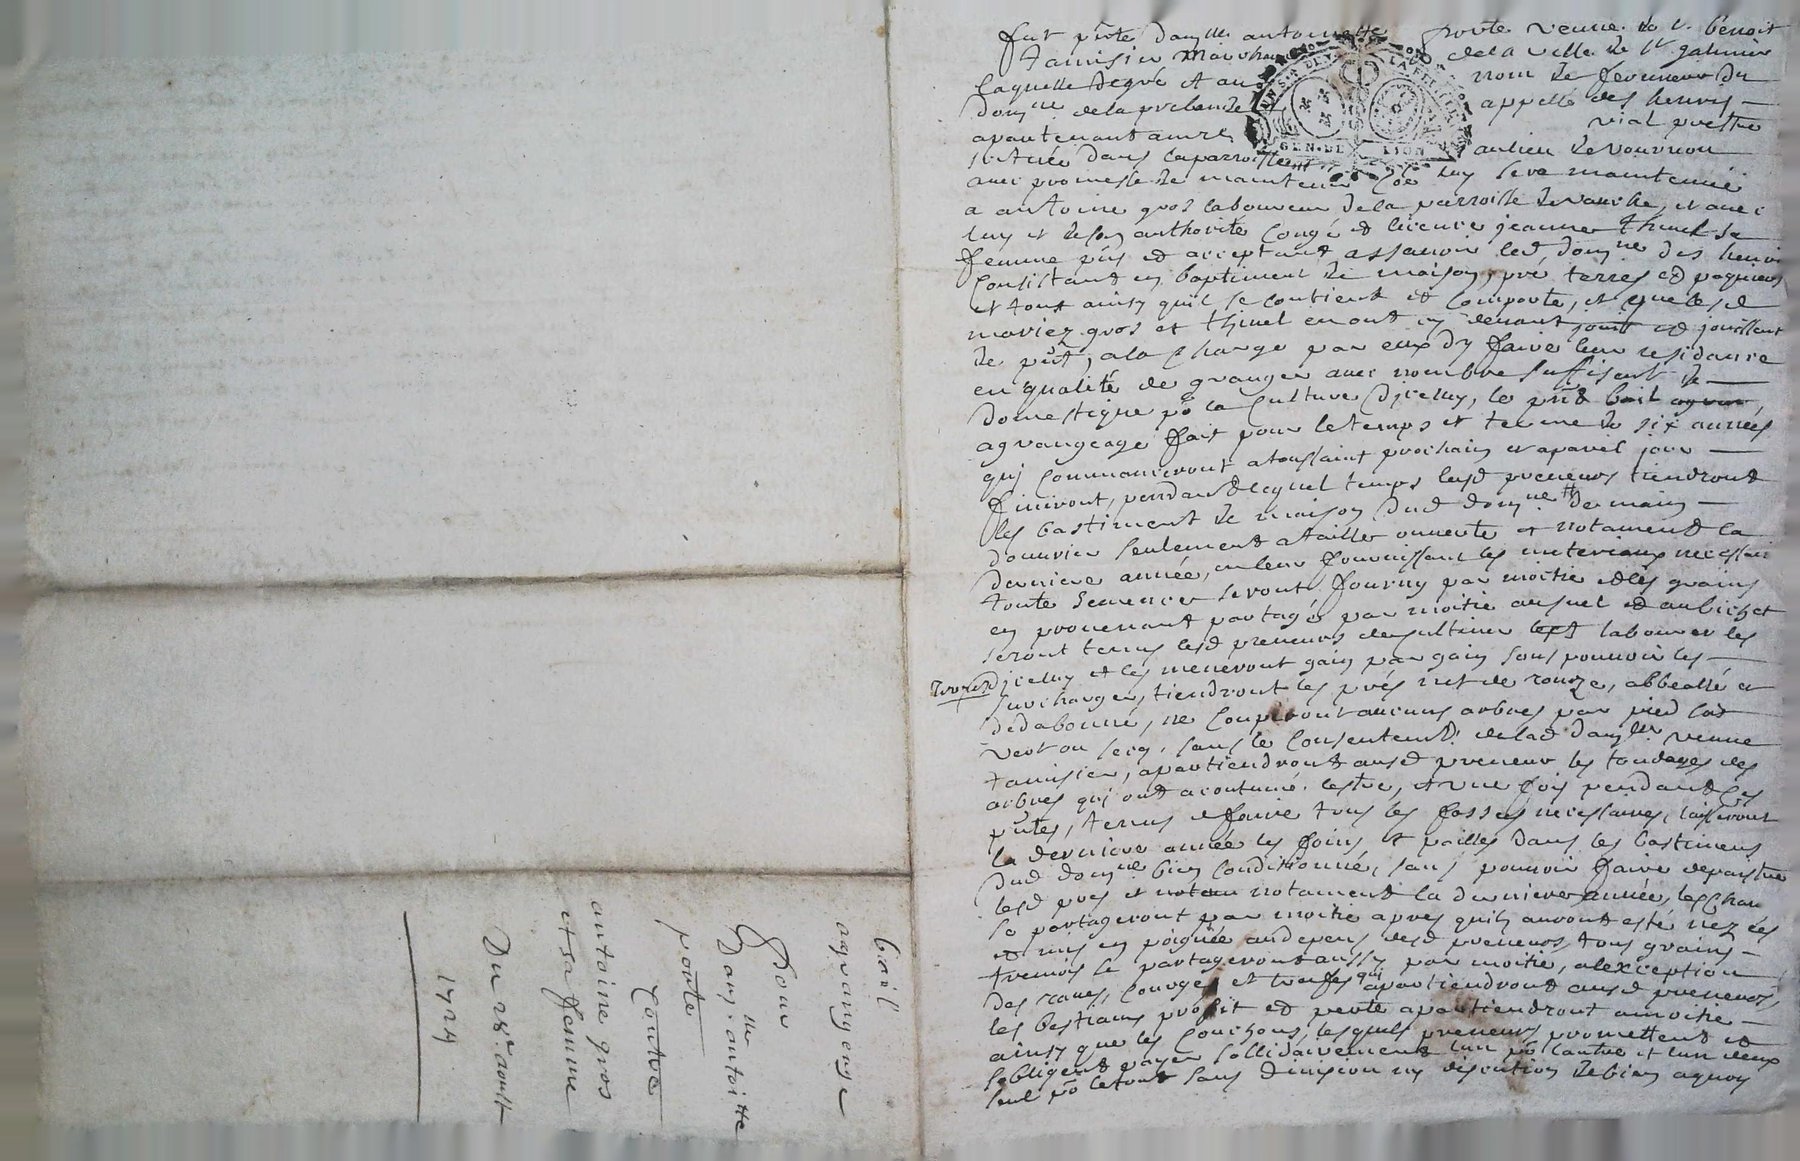 fut pnte dam.lle antoinette ponte veuve de s.r benoit
tamisier marchand de la ville de s.t galmier
laquelle de gré et au nom de fermiere du
dom.ne de la prebande appellé des henris
apartenant a mre vial prestre
scitué dans la parroisse au lieu de vournon
avec promesse de maintenir luy sera maintenüe
a antoine gros laboureur de la parroisse de et avec
luy et de son authorité congé et licence jeanne thinel sa
femme pns et acceptant assavoir led. dom.ne des henris
consistant en bastiment de maison, pré terres et paquiers
et tout ainsy quil se contient et comporte, et que lesd
mariez gros et thinel en ont cy devant jouit et jouissent
de pnt, a la charge par eux dy faire leur residance
en qualité de granger avec nombre suffisent de
domestique po la culture dicelluy, le pnt bail
a grangeage fait pour le temps et terme de six années
qui commanceront a toussaint prochain et a pareil jour
finiront, pendant lequel temps lesd preneurs tiendront
les bastiment de maison dud dom.ne de main
douvrier seulement a taille ouverte et notament la
derniere année, en leur fournissant les materiaux necessaires
toute semences seront fourny par moitié et les grains
en provenant partagé par moitié au suel et au bichet
seront tenus lesd preneurs de cultiver labourer les
terres dicelluy et les meneront gain par gain sans pouvoir les
surcharger, tiendront les prés net de ronze, abbeallé et
ne couperont aucuns arbres par pied
vert ou secq, sans le consentem.t de lad dam.lle veuve
tamisier, apartiendront ausd preneur les tondages des
arbres qui ont acoutumé lestre, et une fois pendant ces
pntes, tenus de faire tous les fossés necessaires, laisseront
la derniere année les foins et pailles dans les bastimens
dud dom.ne bien conditionné, sans pouvoir faire depaistre
lesd prés et notament la derniere année, les chan
se partageront par moitié apres quils auront esté
et mis en poignée au depens desd preneurs, tous grains
tremois se partageront aussy par moitié, a lexception
des raves, courges et trufes qui apartiendront ausd preneurs,
les bestiaux profit et perte apartiendront a moitié
ainsy que les couchons, lesquels preneurs promettent et
sobligent payer sollidairement lun po lautre et lun deux
seul po le tout sans division ny discution de bien a quoy
bail
a grangeage
Pour
Dam.lle antoinette
ponte
Contre
antoine gros
et sa femme
Du 28.e aoust
1729
GEN. DE LYON